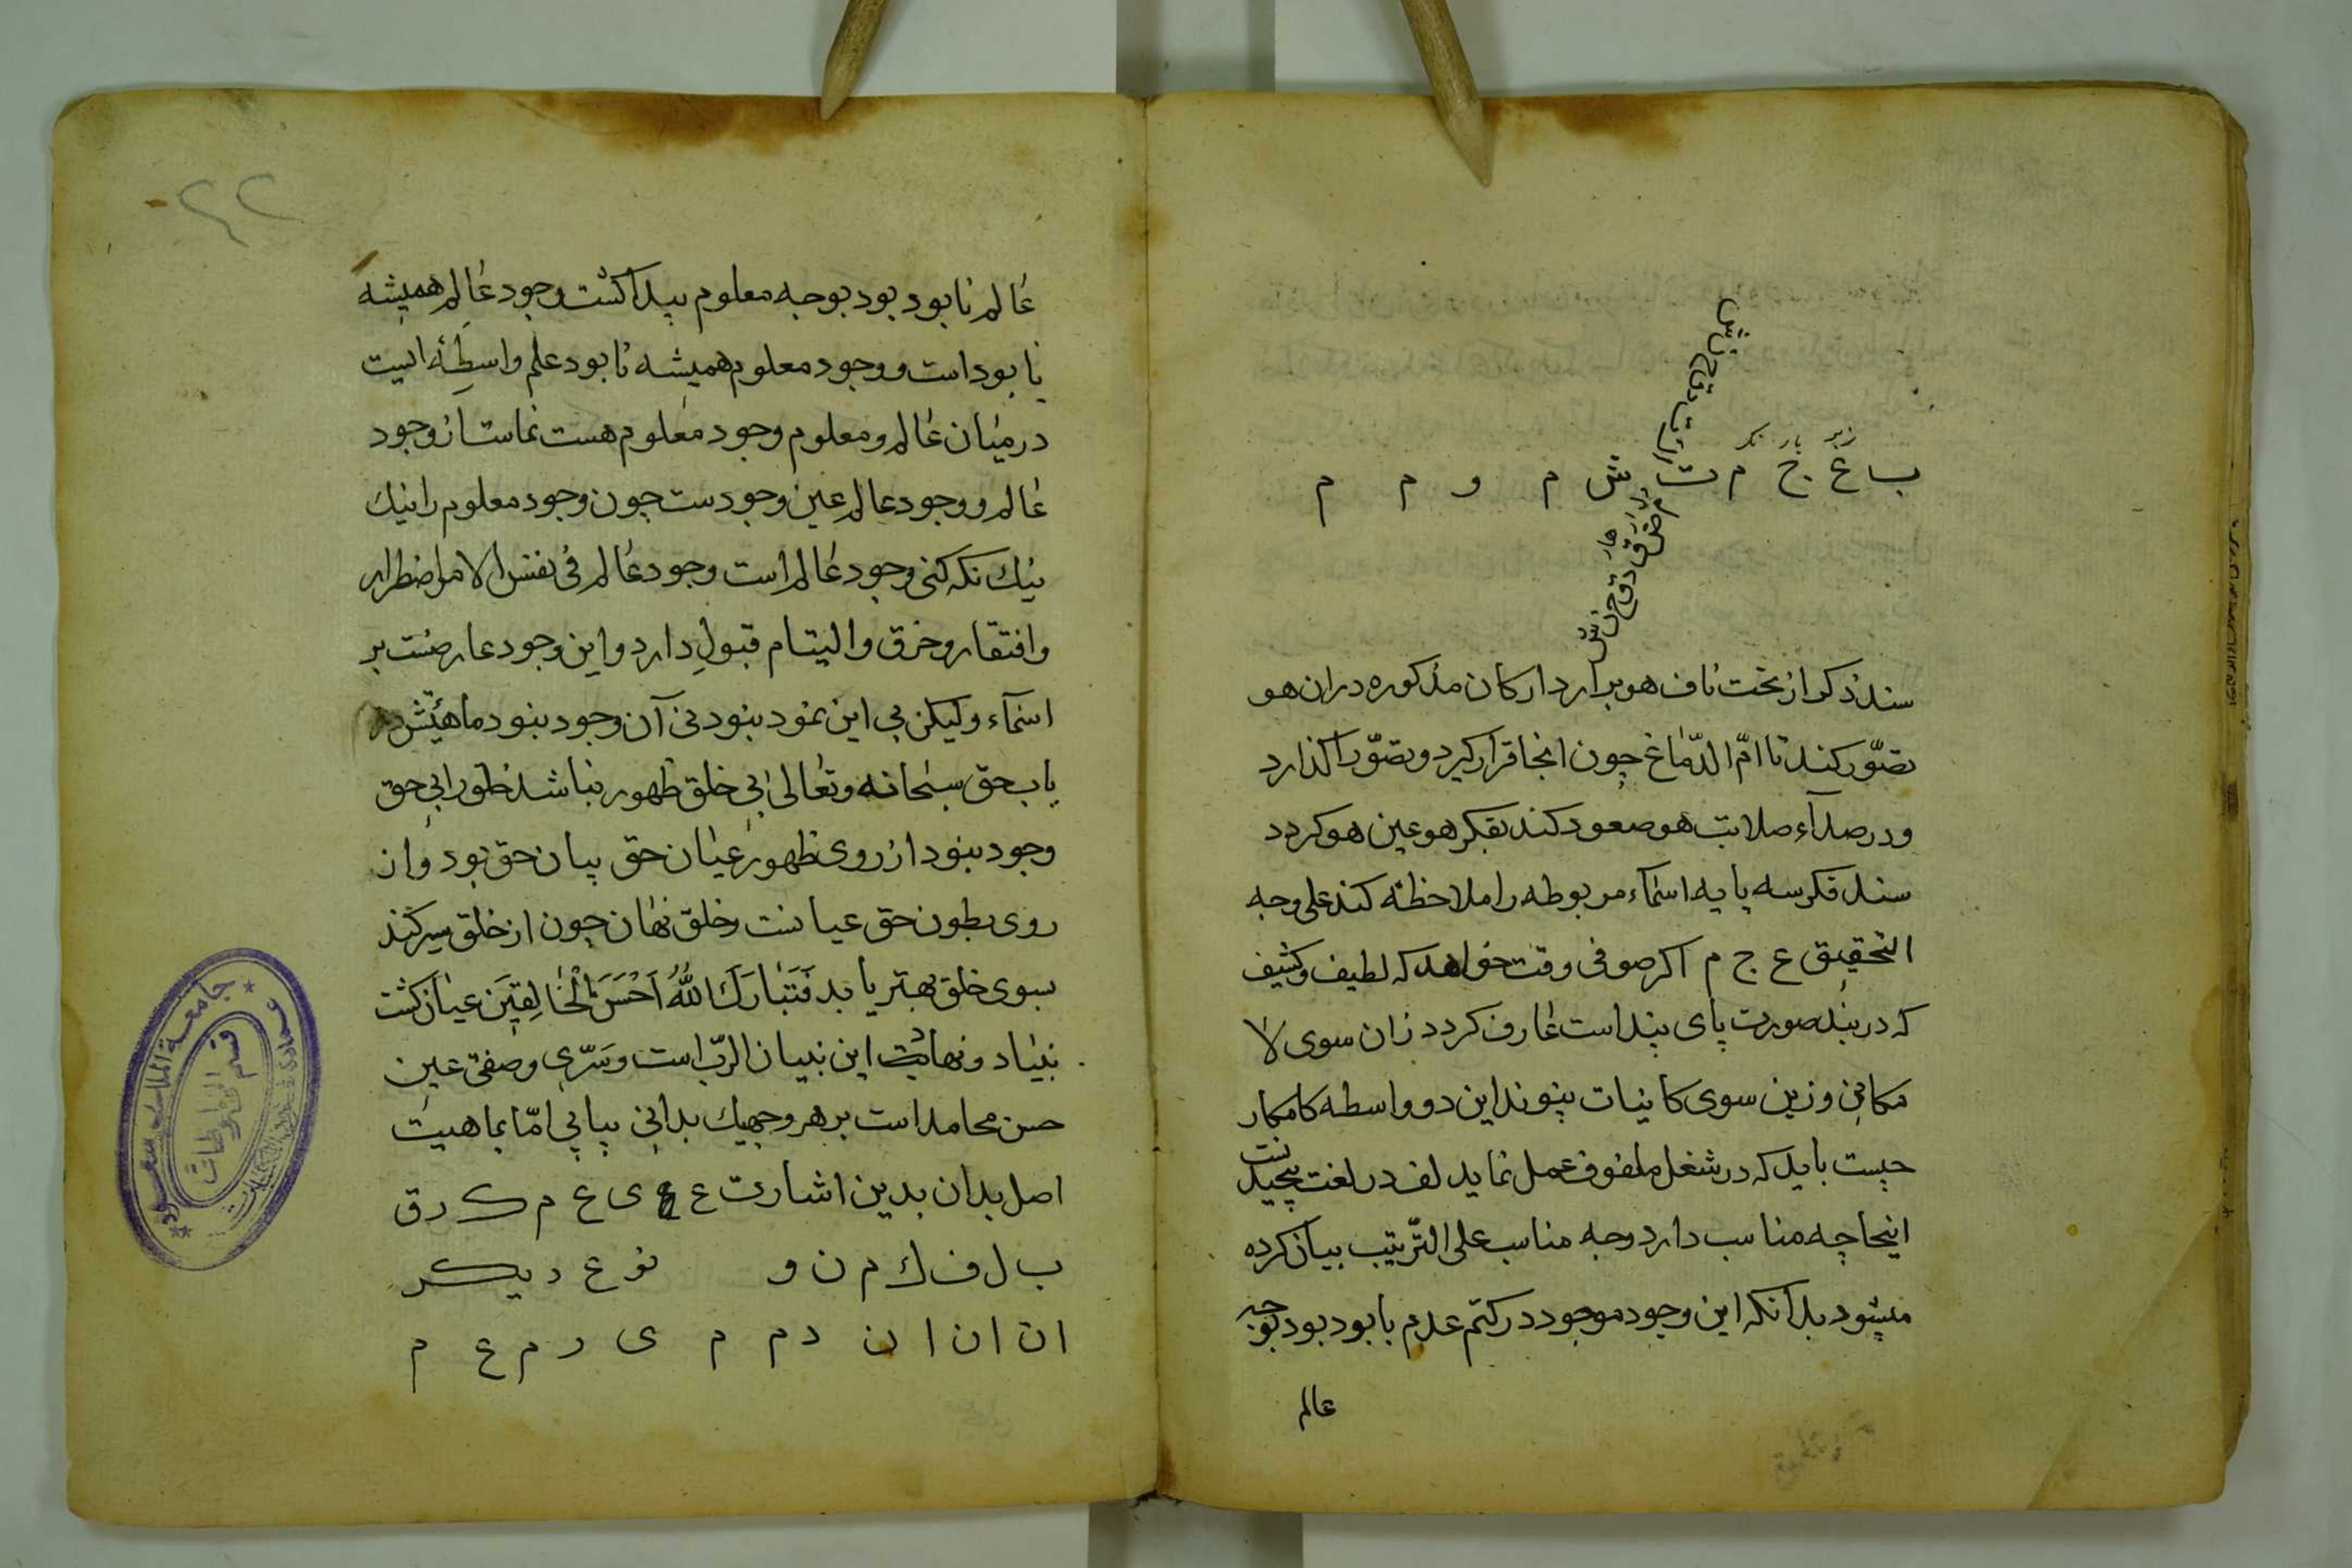 زبر بار نکر
ب ا ع ج م ت ش م و م م
سند ذکر از تخت ناف هو برآرد ارکان مذکوره دران هو
تصوّر کند تا امّ الدّماغ چون انجا قرار کیرد و تصوّر را کذارد
و در صدآء صلابت هو صعود کند بفکر هو عین هو کردد
سند فکر سه پایه اسمآء مربوطه را ملاحظه کند علی وجه
التحقیق ع ج م اکر صوفی وقت خواهد که لطیف و کثیف
که در بند صورت پای بند است عارف کردد زان سوی لا
مکانی و زین سوی کاینات پیوند این دو واسطه کامکار
چیست باید که در شغل ملفوف عمل نماید لف در لغت پیچیدنست
اینجا چه مناسب دارد وجه مناسب علی الترّتیب بیان کرده
میشود بدآنکه این وجود موجود در کتم عدم بابود بود بوجه
عالم
عالم نابود بود بوجه معلوم پیدا کشت وجود عالم همیشه
نابود است و وجود معلوم همیشه نابود علم واسطهٔ ایست
در میان عالم و معلوم وجود معلوم هست نماست از وجود
عالم و وجود عالم عین وجودست چون وجود معلوم را نیك
نیك نکه کنی وجود عالم است وجود عالم فی نفس الامر اضطرار
وافتقار وخرق والیتام قبول دارد واین وجود عارضست بر
اسمآء ولیکن بی این نمود بنود نی آن وجود بنود ماهیّتش در
یاب حق سبحانه وتعالی بی خلق ظهور نباشد خلق را بی حق
وجود بنود از روی ظهور عیان حق بیان حق بود واز
روی بطون حق عیانست وخلق نهان چون از خلق سیر کند
سوی خلق بهتر یابد فَتَبَارَكَ اللّٰهُ اَحْسَنُ الْخَالِقِینَ عیان کشت
بنیاد ونهایت این بنیان الرّب است وسرّی وصفتی عین
حسن محامد است بر هر وجهیك بدانی بیابی امّا بماهیت
اصل بدان بدین اشارت ع ع ی ع م ک د ق
ب ل ف ك م ن و نوع دیکر
ا ن ا ن ا ن د م م ی ر م ع م
جامعة الملك سعود
قسم المخطوطات